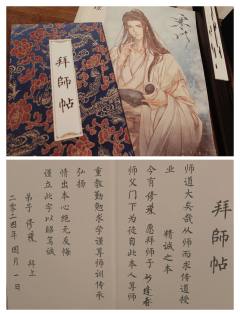 拜師帖
拜師帖
师道大矣哉从师而求传道授
业 精诚之本
今有 修 愿拜师于
师父门下为徒自此本人尊师
重教勤勉求学谨尊师训传承
弘扬
情出本心绝无反悔
谨立此字以昭笃诚
弟子 修 拜上
二零二四年 四 月 1 日